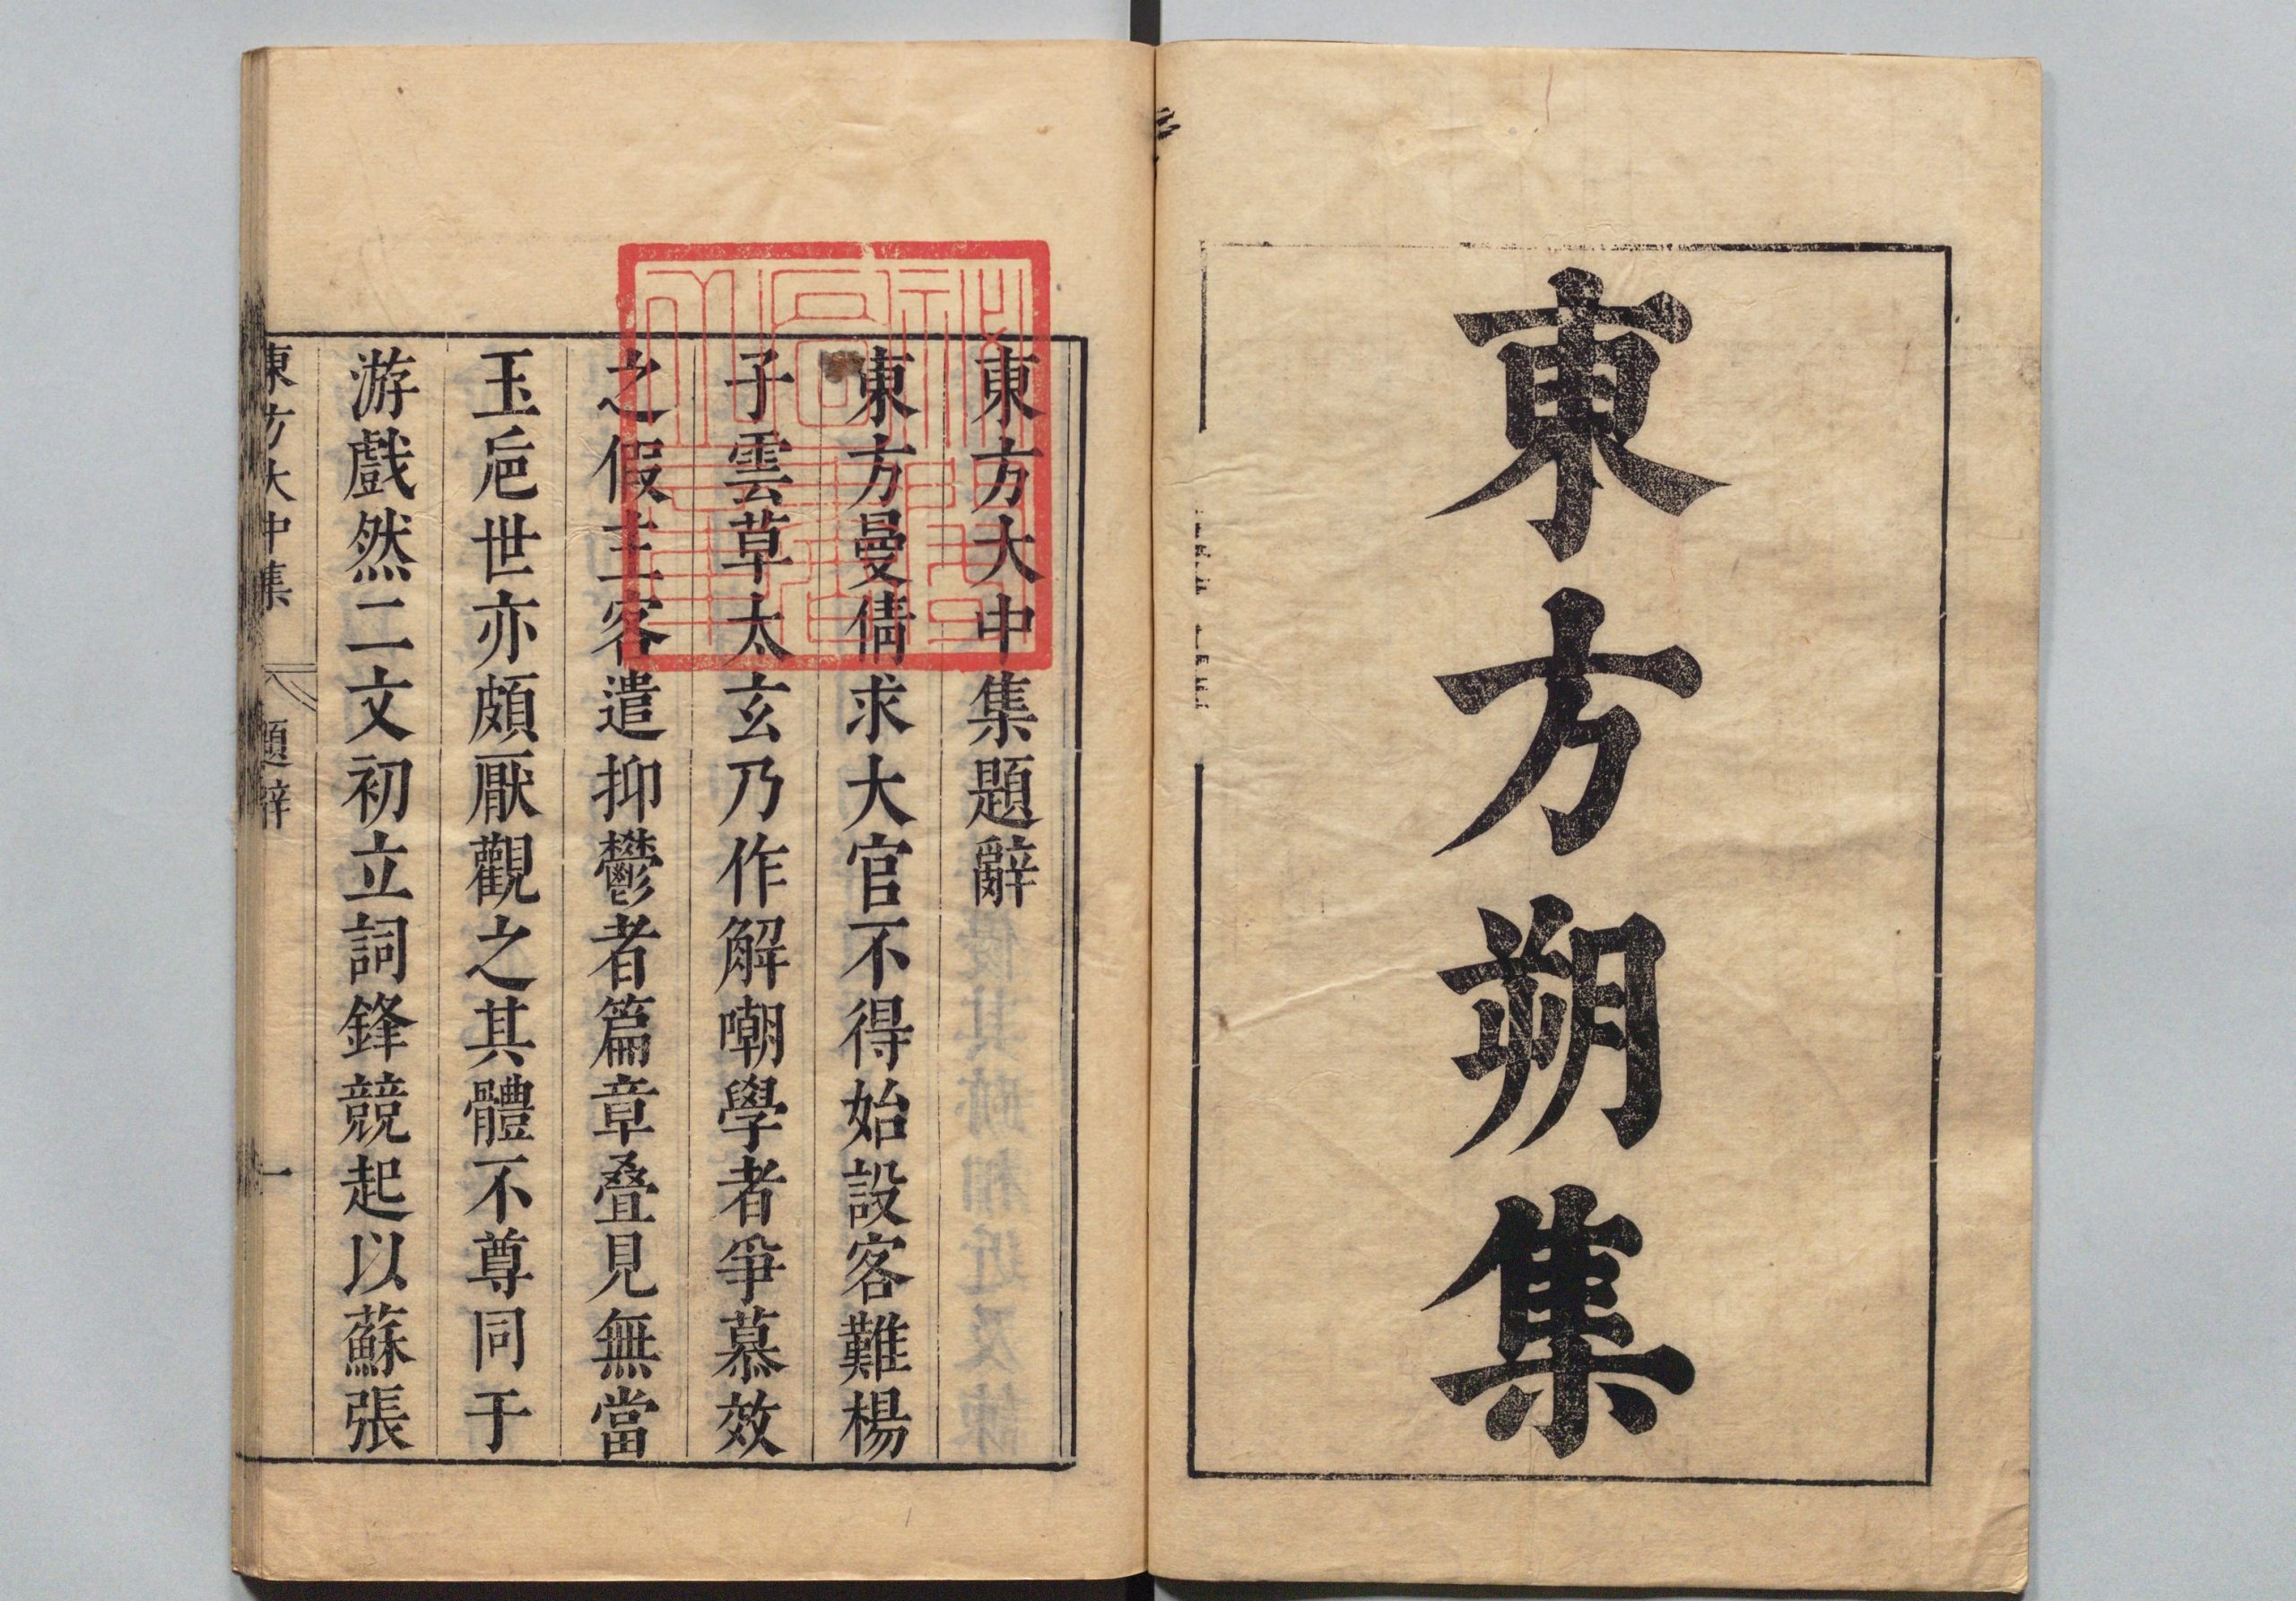 東方朔集
東方大中集題辭
東方曼倩求大官不得始設客難楊
子雲草太玄乃作解嘲學者爭慕效
之假主客遣抑鬱者篇章叠見無當
玉巵世亦頗厭觀之其體不尊同于
游戲然二文初立詞鋒競起以蘇張
東方大中集 題辭 一